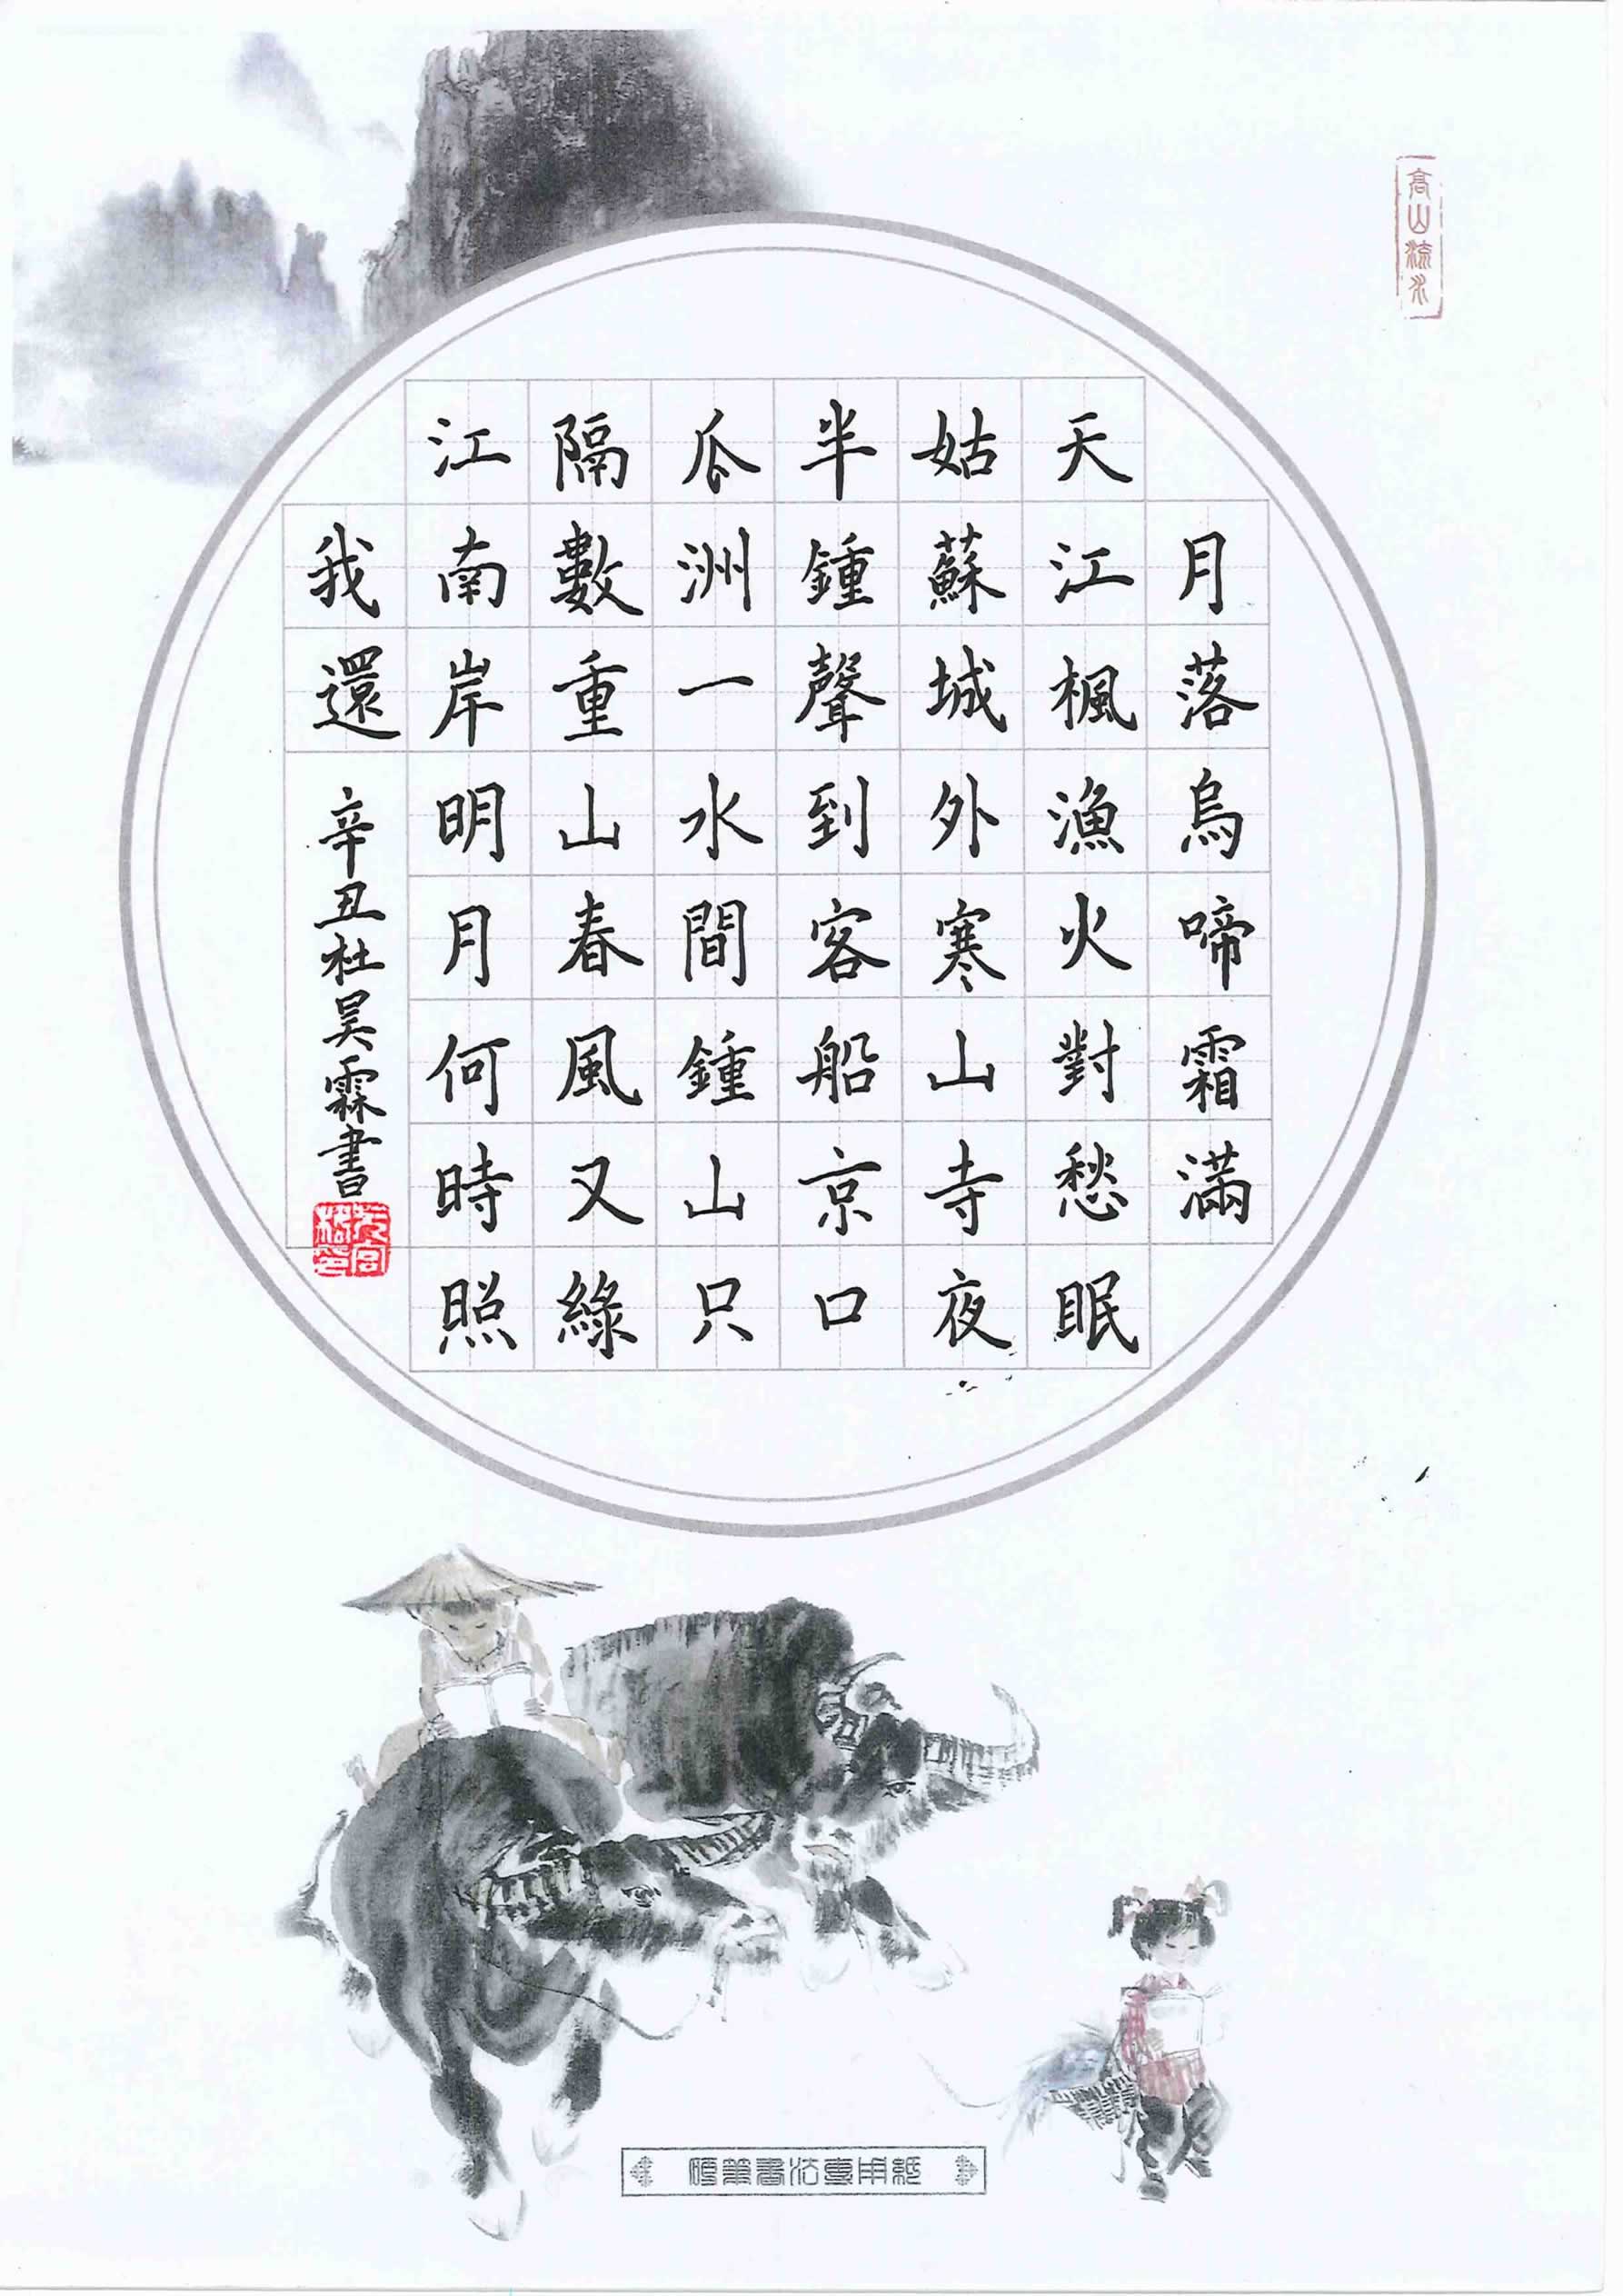 高山流水
月落烏啼霜滿
天江楓漁火對愁眠
姑蘇城外寒山寺夜
半鍾聲到客船京口
瓜洲一水間鍾山只
隔數重山春風又綠
江南岸明月何時照
我還
辛丑杜昊霖書
硬筆書法專用紙